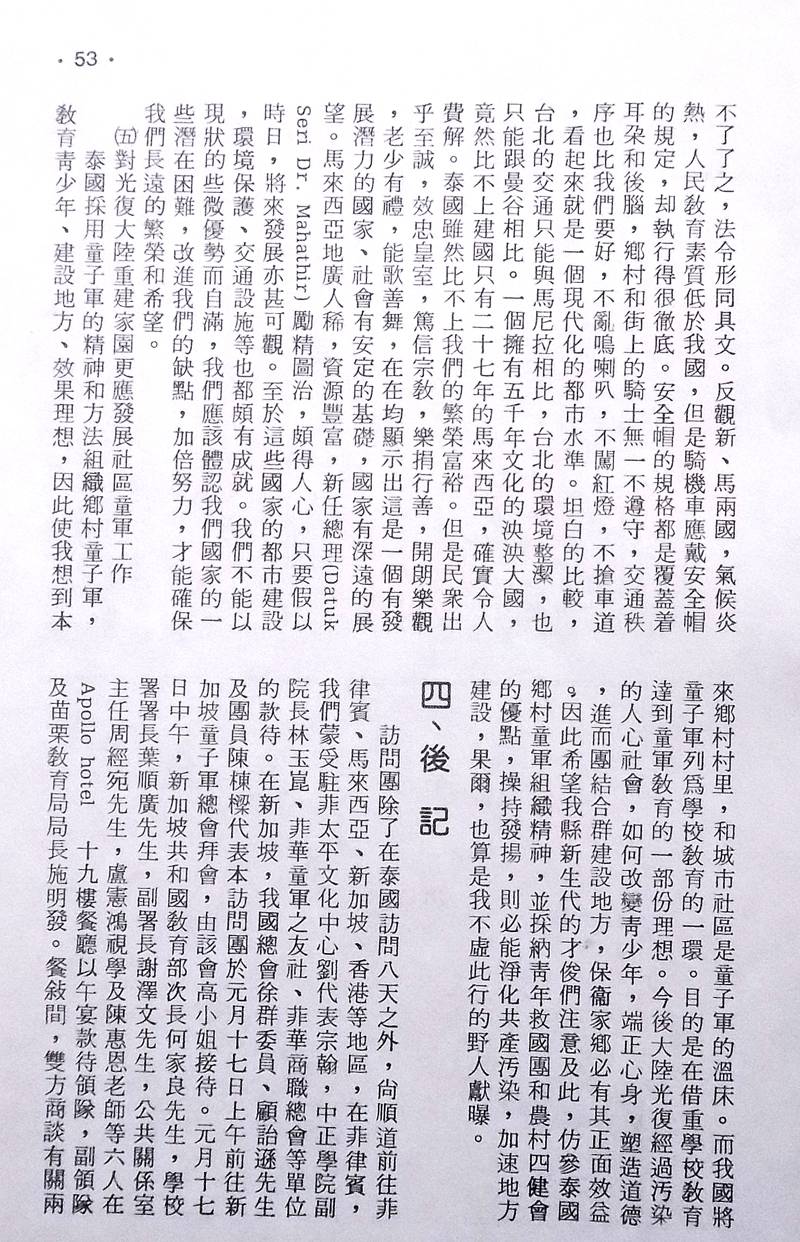 · 53 ·
不了了之，法令形同具文。反觀新、馬兩國，氣候炎
熱，人民教育素質低於我國，但是騎機車應戴安全帽
的規定，却執行得很徹底。安全帽的規格都是覆蓋着
耳朶和後腦，鄉村和街上的騎士無一不遵守，交通秩
序也比我們要好，不亂鳴喇叭，不闖紅燈，不搶車道
，看起來就是一個現代化的都市水準。坦白的比較，
台北的交通只能與馬尼拉相比，台北的環境整潔，也
只能跟曼谷相比。一個擁有五千年文化的泱泱大國，
竟然比不上建國只有二十七年的馬來西亞，確實令人
費解。泰國雖然比不上我們的繁榮富裕。但是民衆出
乎至誠，效忠皇室，篤信宗教，樂捐行善，開朗樂觀
，老少有禮，能歌善舞，在在均顯示出這是一個有發
展潛力的國家、社會有安定的基礎，國家有深遠的展
望。馬來西亞地廣人稀，資源豐富，新任總理(Datuk
Seri Dr. Mahathir) 勵精圖治，頗得人心，只要假以
時日，將來發展亦甚可觀。至於這些國家的都市建設
，環境保護、交通設施等也都頗有成就。我們不能以
現狀的些微優勢而自滿，我們應該體認我們國家的一
些潛在困難，改進我們的缺點，加倍努力，才能確保
我們長遠的繁榮和希望。
㈤對光復大陸重建家園更應發展社區童軍工作
泰國採用童子軍的精神和方法組織鄉村童子軍，
教育靑少年、建設地方、效果理想，因此使我想到本
來鄉村村里，和城市社區是童子軍的溫床。而我國將
童子軍列爲學校教育的一環。目的是在借重學校教育
達到童軍教育的一部份理想。今後大陸光復經過汚染
的人心社會，如何改變靑少年，端正心身，塑造道德
，進而團結合群建設地方，保衞家鄉必有其正面效益
。因此希望我縣新生代的才俊們注意及此，仿參泰國
鄉村童軍組織精神，並採納靑年救國團和農村四健會
的優點，操持發揚，則必能淨化共產汚染，加速地方
建設，果爾，也算是我不虛此行的野人獻曝。
四、後 記
訪問團除了在泰國訪問八天之外，尙順道前往菲
律賓、馬來西亞、新加坡、香港等地區，在菲律賓，
我們蒙受駐菲太平文化中心劉代表宗翰，中正學院副
院長林玉崑、菲華童軍之友社、菲華商職總會等單位
的款待。在新加坡，我國總會徐群委員、顧詒遜先生
及團員陳棟樑代表本訪問團於元月十七日上午前往新
加坡童子軍總會拜會，由該會高小姐接待。元月十七
日中午，新加坡共和國教育部次長何家良先生，學校
署署長葉順廣先生，副署長謝澤文先生，公共關係室
主任周經宛先生，盧憲鴻視學及陳惠恩老師等六人在
Apollo hotel 十九樓餐廳以午宴款待領隊，副領隊
及苗栗教育局局長施明發。餐敍間，雙方商談有關兩